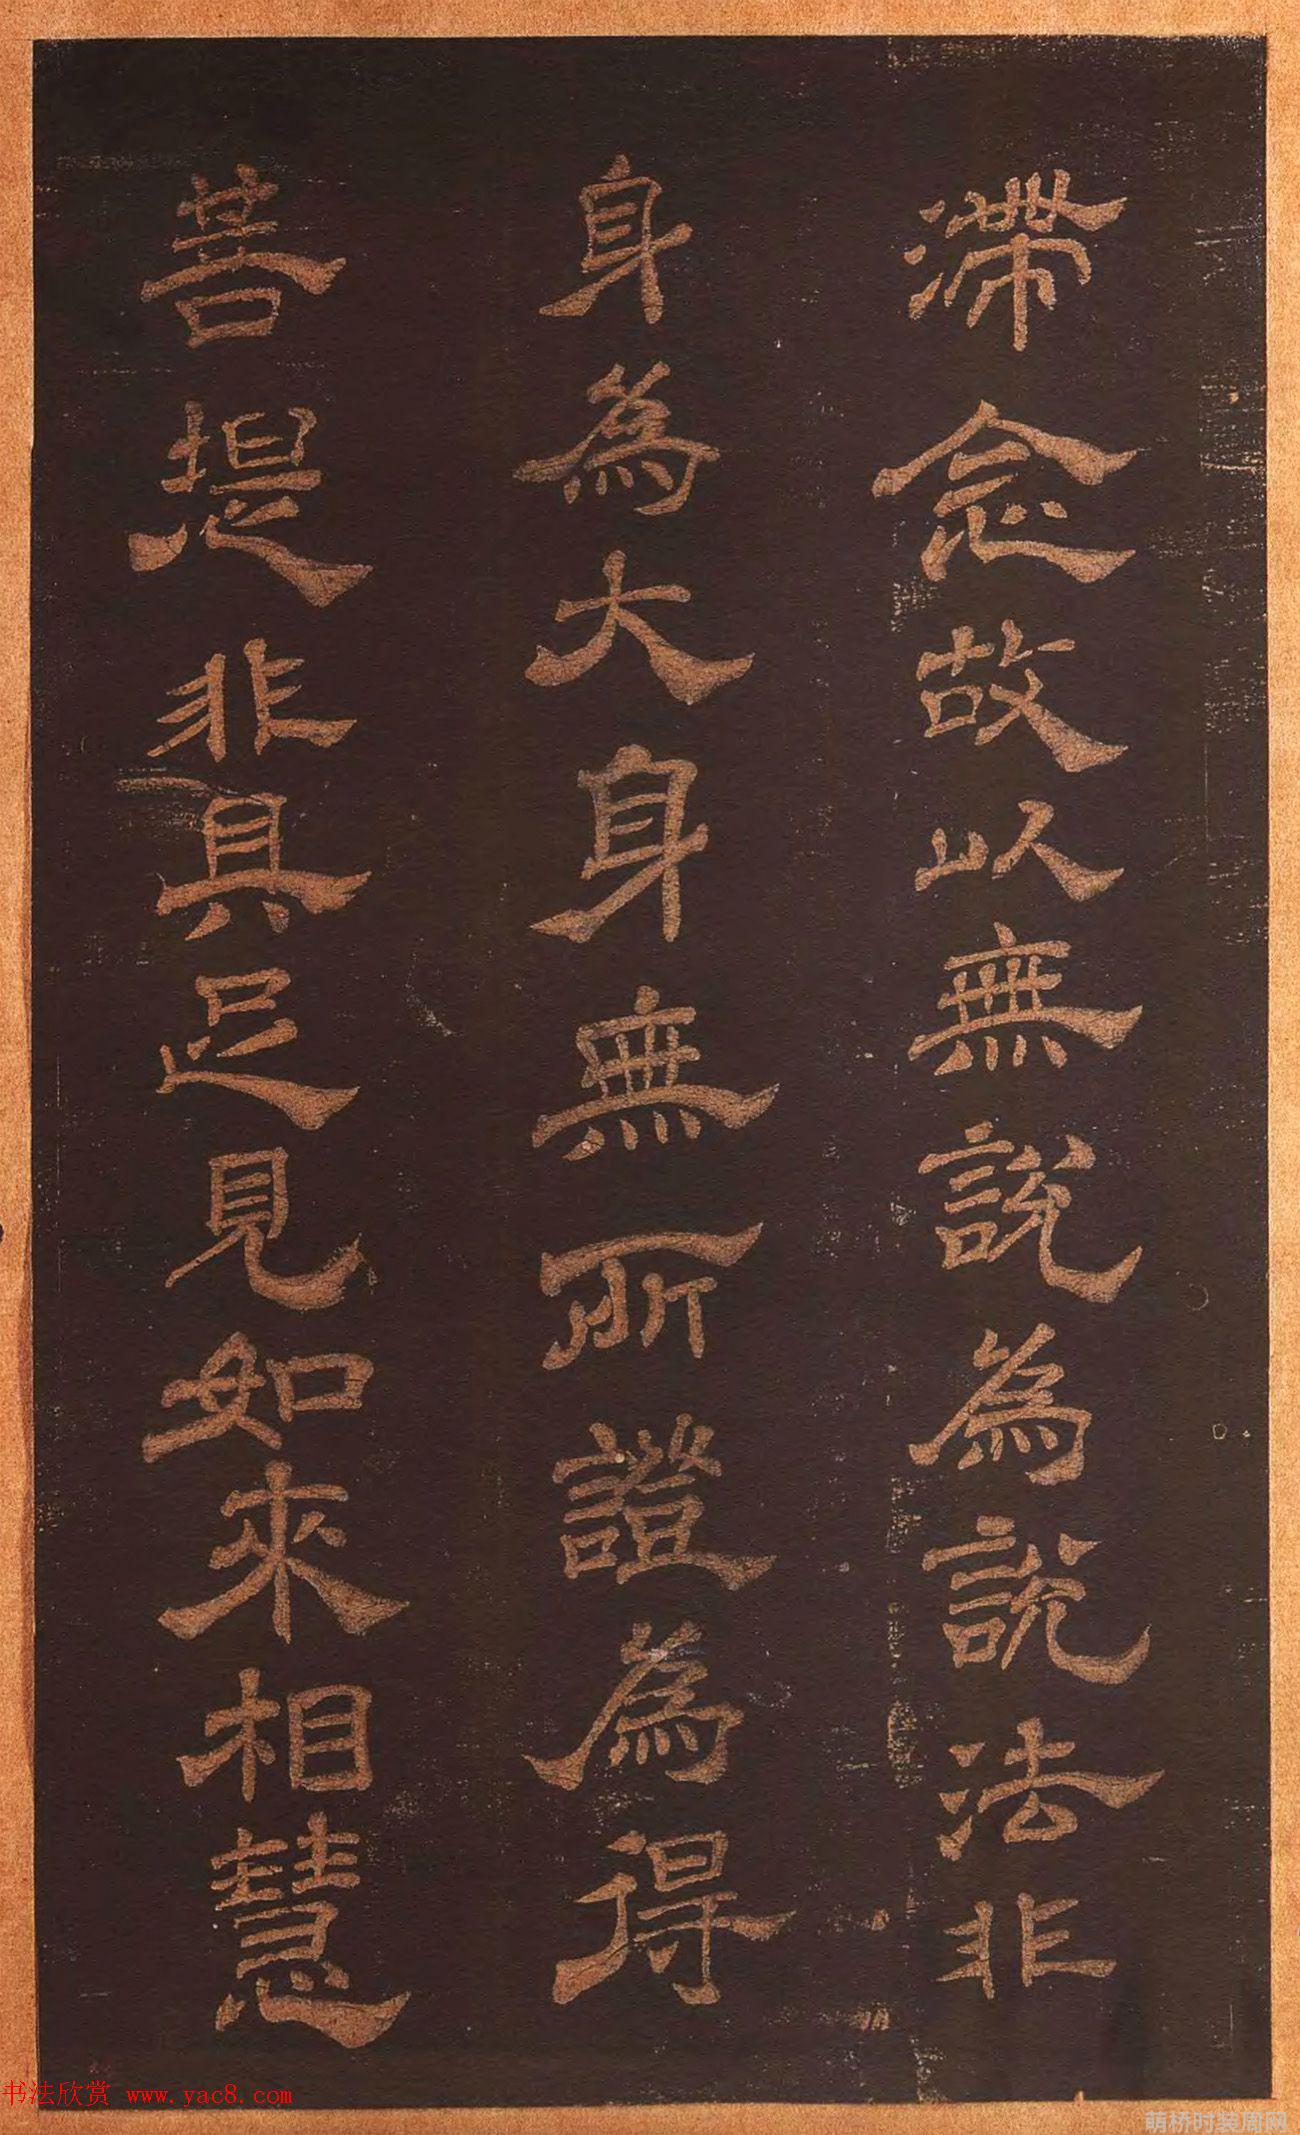 滯念故以無說為說法非
身為大身無所證為得
菩提非具足見如來相慧
书法欣赏 www.yac8.com
萌桥时装周网